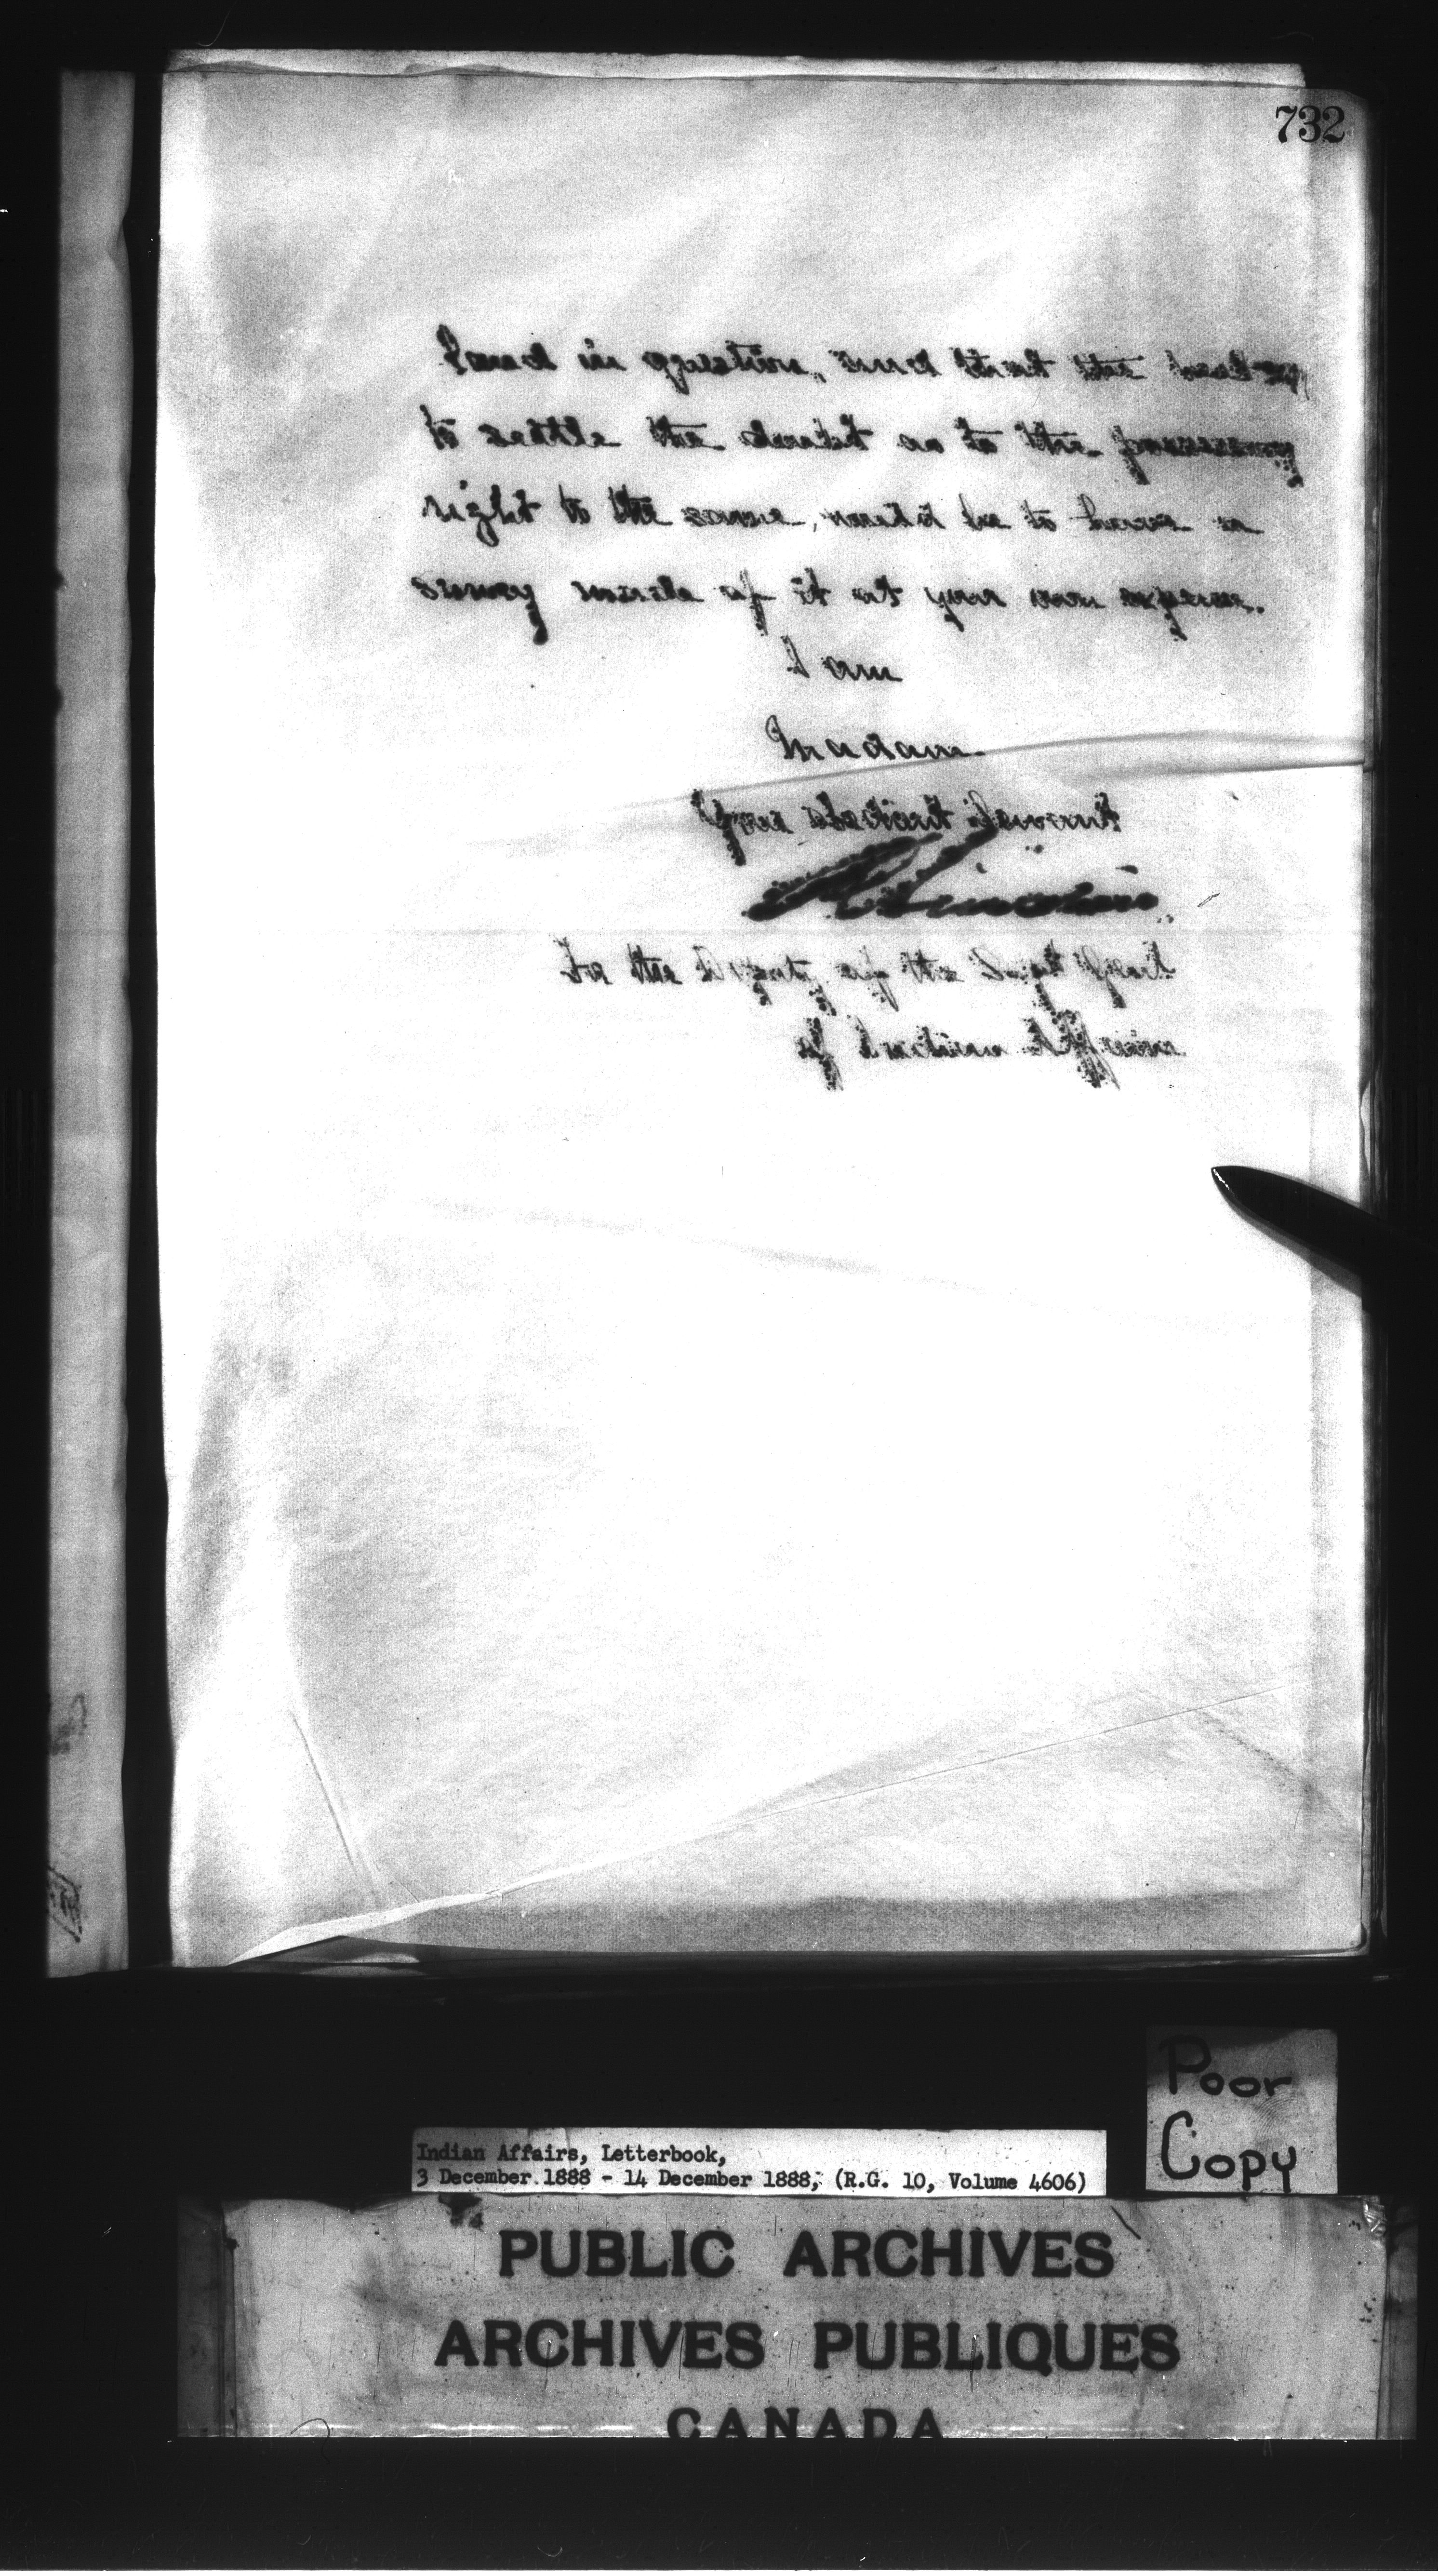 732
land in question, and that the best way
to settle the doubt as to the possessory
right to the same, would be to have a
survey made of it at your own expense.
I am
Madam
Your obedient Servant
R Sinclair
For the Deputy of the Supt Genl
of Indian Affairs
Poor
Copy
Indian Affairs, Letterbook,
3 December 1888 - 14 December 1888, (R.G. 10, Volume 4606)
PUBLIC ARCHIVES
ARCHIVES PUBLIQUES
CANADA